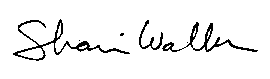 Shari Walker